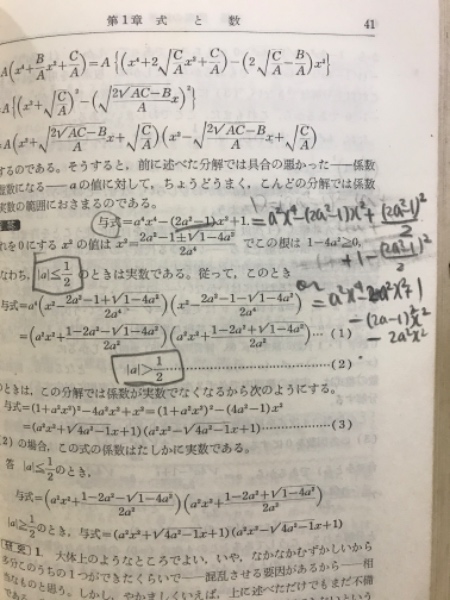 第1章 式と数 41
A(x⁴+B/A x²+C/A)=A{(x⁴+2√(C/A) x²+C/A)−(2√(C/A)−B/A)x²}
=A{(x²+√(C/A))²−(√((2√AC−B)/A) x)²}
=A(x²+√((2√AC−B)/A) x+√(C/A))(x²−√((2√AC−B)/A) x+√(C/A))
するのである。そうすると，前に述べた分解では具合の悪かった——係数
虚数になる——aの値に対して，ちょうどうまく，こんどの分解では係数
実数の範囲におさまるのである。
与式=a⁴x⁴−(2a²−1)x²+1.
=a⁴x⁴−(2a²−1)x²+(2a²−1)²/2
+1−(2a²−1)²/2
れを0にする x² の値は x²=(2a²−1±√(1−4a²))/2a⁴ でこの根は 1−4a²≧0,
なわち，|a|≦1/2 のときは実数である。従って，このとき
or
与式=a⁴(x²−(2a²−1+√(1−4a²))/2a⁴)(x²−(2a²−1−√(1−4a²))/2a⁴)
=(a²x²+(1−2a²−√(1−4a²))/2a²)(a²x²+(1−2a²+√(1−4a²))/2a²)… (1)
|a|>1/2 ……(2)
のときは，この分解では係数が実数でなくなるから次のようにする。
与式=(1+a²x²)²−4a²x²+x²=(1+a²x²)²−(4a²−1)x²
=(a²x²+√(4a²−1)x+1)(a²x²−√(4a²−1)x+1)……(3)
(2) の場合，この式の係数はたしかに実数である。
答 |a|≦1/2のとき，
与式=(a²x²+(1−2a²−√(1−4a²))/2a²)(a²x²+(1−2a²+√(1−4a²))/2a²)
|a|≧1/2のとき，与式=(a²x²+√(4a²−1)x+1)(a²x²−√(4a²−1)x+1)
研究 1. 大体上のようなところでよい，いや，なかなかむずかしいから
多分このうちの1つができたくらいで——混乱させる要因があるから——相
当なものと思う。しかし，やかましくいえば，上に述べただけでもまだ不備